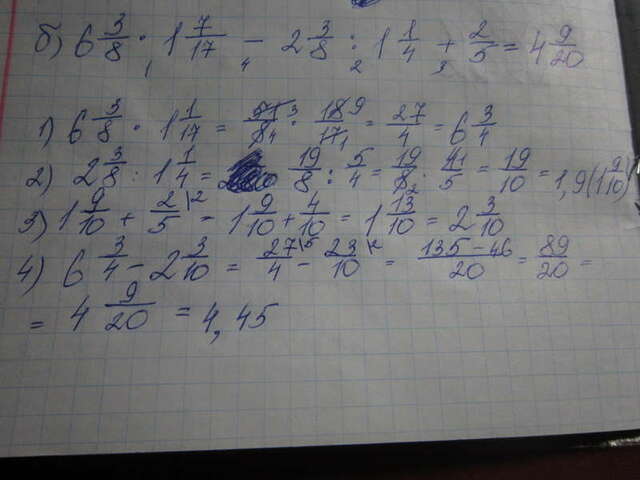 б) 6 3/8 · 1 7/17 - 2 3/8 : 1 1/4 + 2/5 = 4 9/20
1 4 2 3
1) 6 3/8 · 1 1/17 = 51 3/8 4 · 18 9/17 1 = 27/4 = 6 3/4
2) 2 3/8 : 1 1/4 = 19/8 : 5/4 = 19/8 2 · 4 1/5 = 19/10 = 1,9 (1 9/10)
3) 1 9/10 + 2/5 \2 = 1 9/10 + 4/10 = 1 13/10 = 2 3/10
4) 6 3/4 - 2 3/10 = 27/4 \5 - 23/10 \2 = 135-46/20 = 89/20 =
= 4 9/20 = 4,45